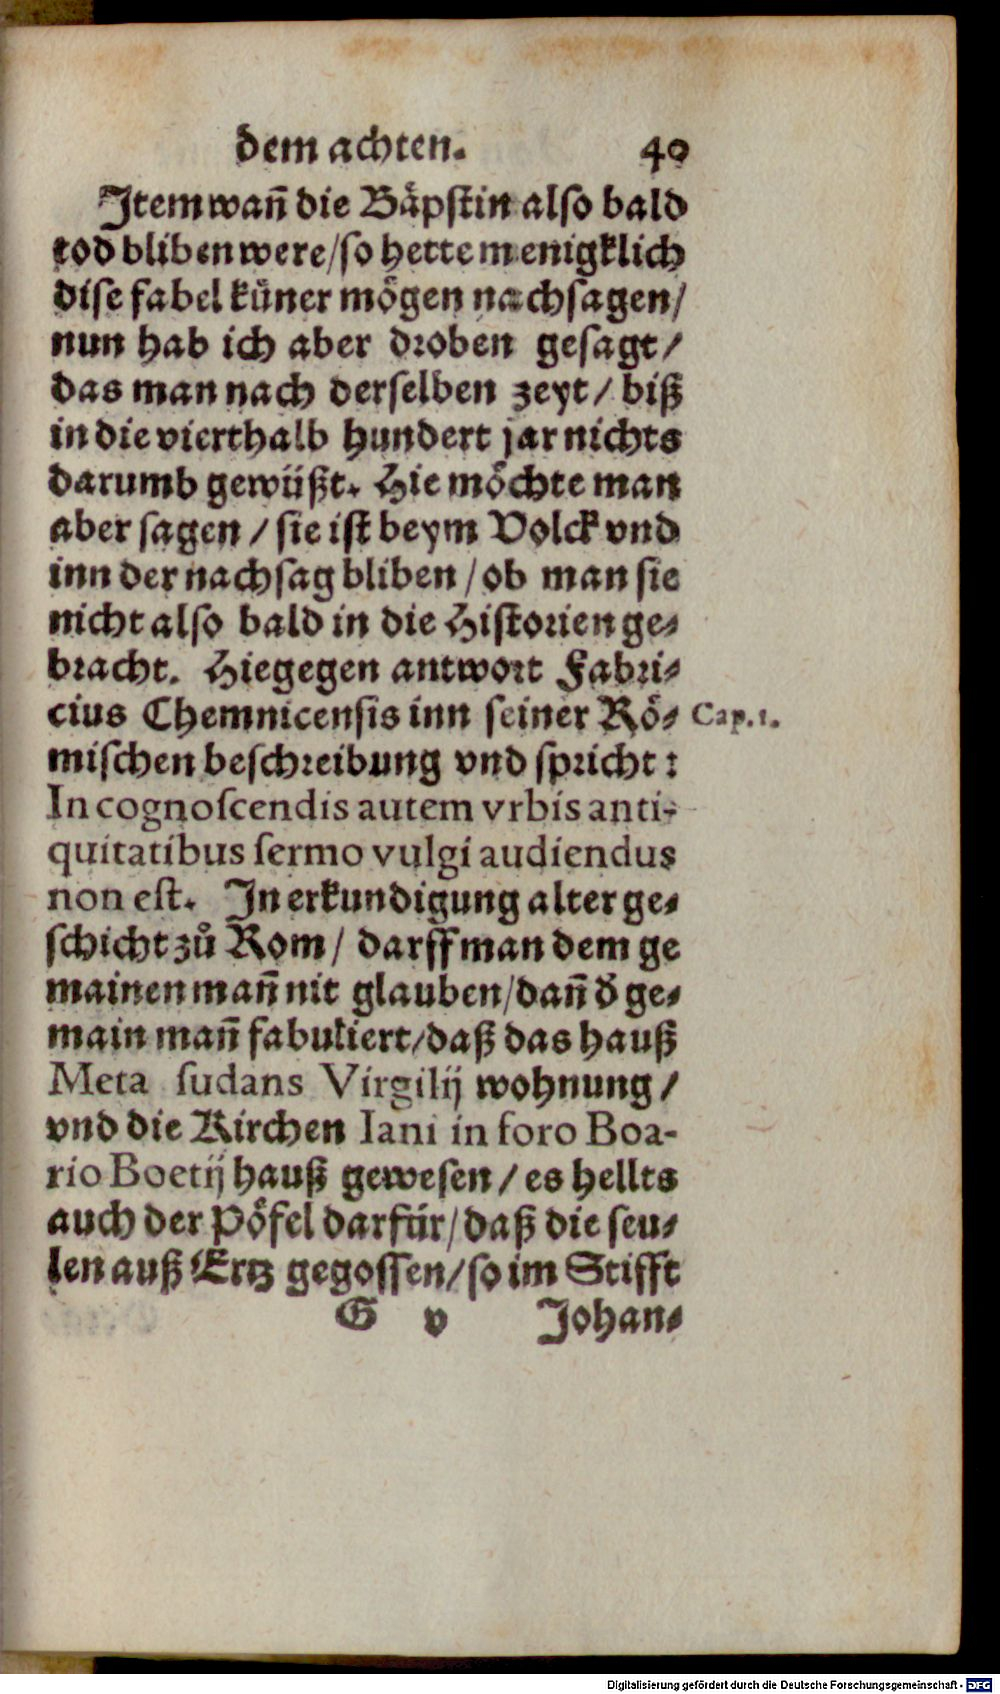 dem achten. 40
Item wañ die Bäpstin also bald
tod bliben were/so hette menigklich
dise fabel küner mögen nachsagen/
nun hab ich aber droben gesagt/
das man nach derselben zeyt/ biß
in die vierthalb hundert jar nichts
darumb gewüßt. Hie möchte man
aber sagen/sie ist beym Volck vnd
inn der nachsag bliben/ob man sie
nicht also bald in die Historien ge-
bracht. Hiegegen antwort Fabri-
cius Chemnicensis inn seiner Rö- Cap.1.
mischen beschreibung vnd spricht:
In cognoscendis autem vrbis anti-
quitatibus sermo vulgi audiendus
non est. In erkundigung alter ge-
schicht zů Rom/ darff man dem ge
mainen mañ nit glauben/dañ d̄ ge-
main mañ fabuliert/daß das hauß
Meta sudans Virgilij wohnung/
vnd die Kirchen Iani in foro Boa-
rio Boetij hauß gewesen/es hellts
auch der Pöfel darfür/daß die seu-
len auß Ertz gegossen/so im Stifft
G v Johan-
Digitalisierung gefördert durch die Deutsche Forschungsgemeinschaft - DFG